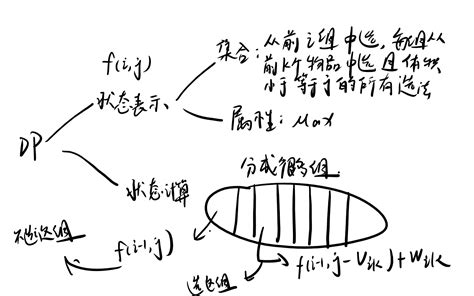 f(i,j)
集合：从前i组中选，每组从
前k个物品中选且体积
小于等于j的所有选法
状态表示、
属性：Max
DP
分成若干组
状态计算
不选这组
f(i-1,j)
f(i-1,j-Vik)+Wik
选这组